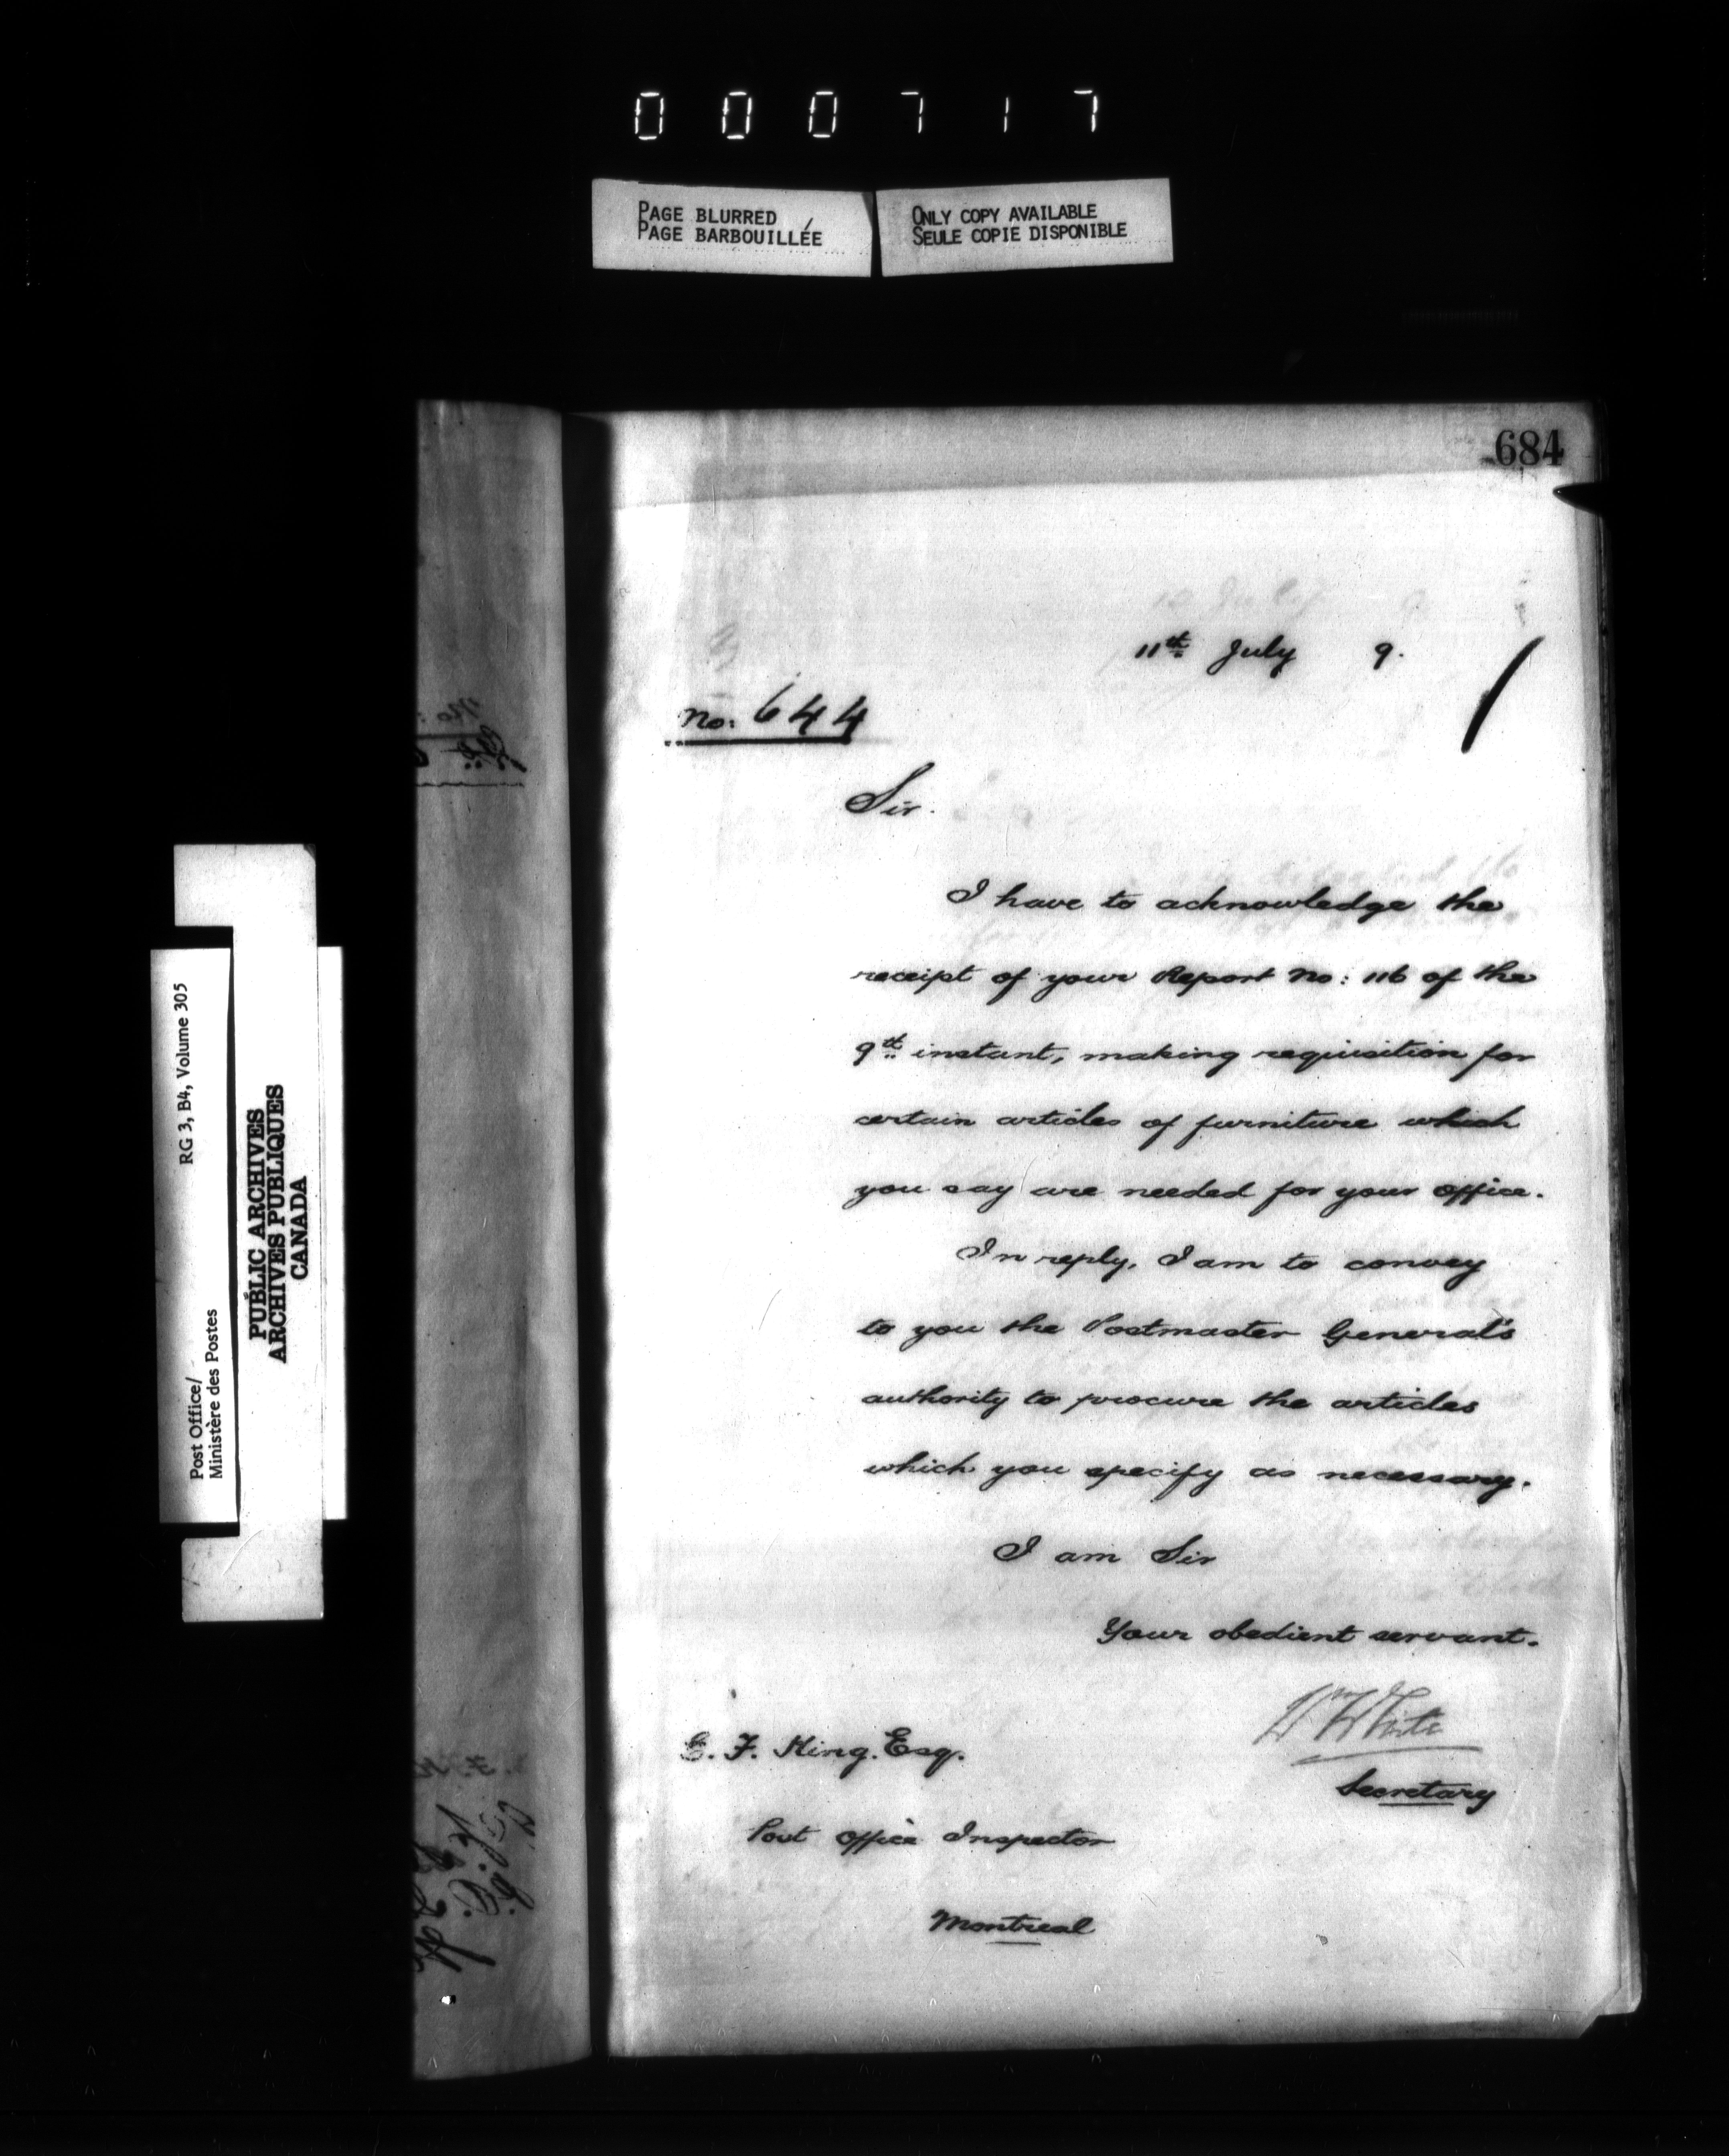 000717
PAGE BLURRED
PAGE BARBOUILLÉE
ONLY COPY AVAILABLE
SEULE COPIE DISPONIBLE
684
11th July 9.
No: 644
Sir.
I have to acknowledge the
receipt of your Report No: 116 of the
9th instant, making requisition for
certain articles of furniture which
you say are needed for your office.
In reply, I am to convey
to you the Postmaster General's
authority to procure the articles
which you specify as necessary.
I am Sir
Your obedient servant.
Wm White
Secretary
E. F. King. Esq.
Post Office Inspector
Montreal
RG 3, B4, Volume 305
Post Office/
Ministère des Postes
PUBLIC ARCHIVES
ARCHIVES PUBLIQUES
CANADA